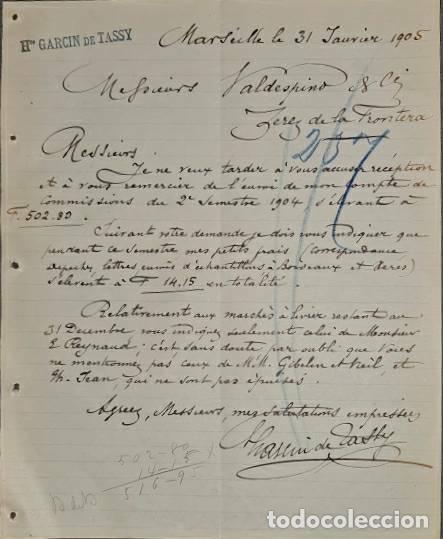 Hte GARCIN DE TASSY
Marseille le 31 Janvier 1905
Messieurs Valdespino & Cie
Xerez de la Frontera
207
Messieurs
Je ne veux tarder à vous accuser réception
et à vous remercier de l'envoi de mon compte de
commissions du 2e Semestre 1904 s'élevant à
F. 502.80.
Suivant votre demande je dois vous indiquer que
pendant ce Semestre mes petits frais (correspondance
depeches, lettres envois d'échantillons à Bordeaux et Xeres)
s'élèvent à F 14.15 en totalité.
Relativement aux marchés à livrer restant au
31 Decembre vous indiquez seulement celui de Monsieur
E Reynaud; c'est sans doute par oubli que vous
ne mentionnez pas ceux de M.M. Gibelin et, et
Th. Jean, qui ne sont pas épuisés.
Agréez, Messieurs, mes salutations empressées
Garcin de Tassy
502-80
14-15
516-95
todocoleccion.net